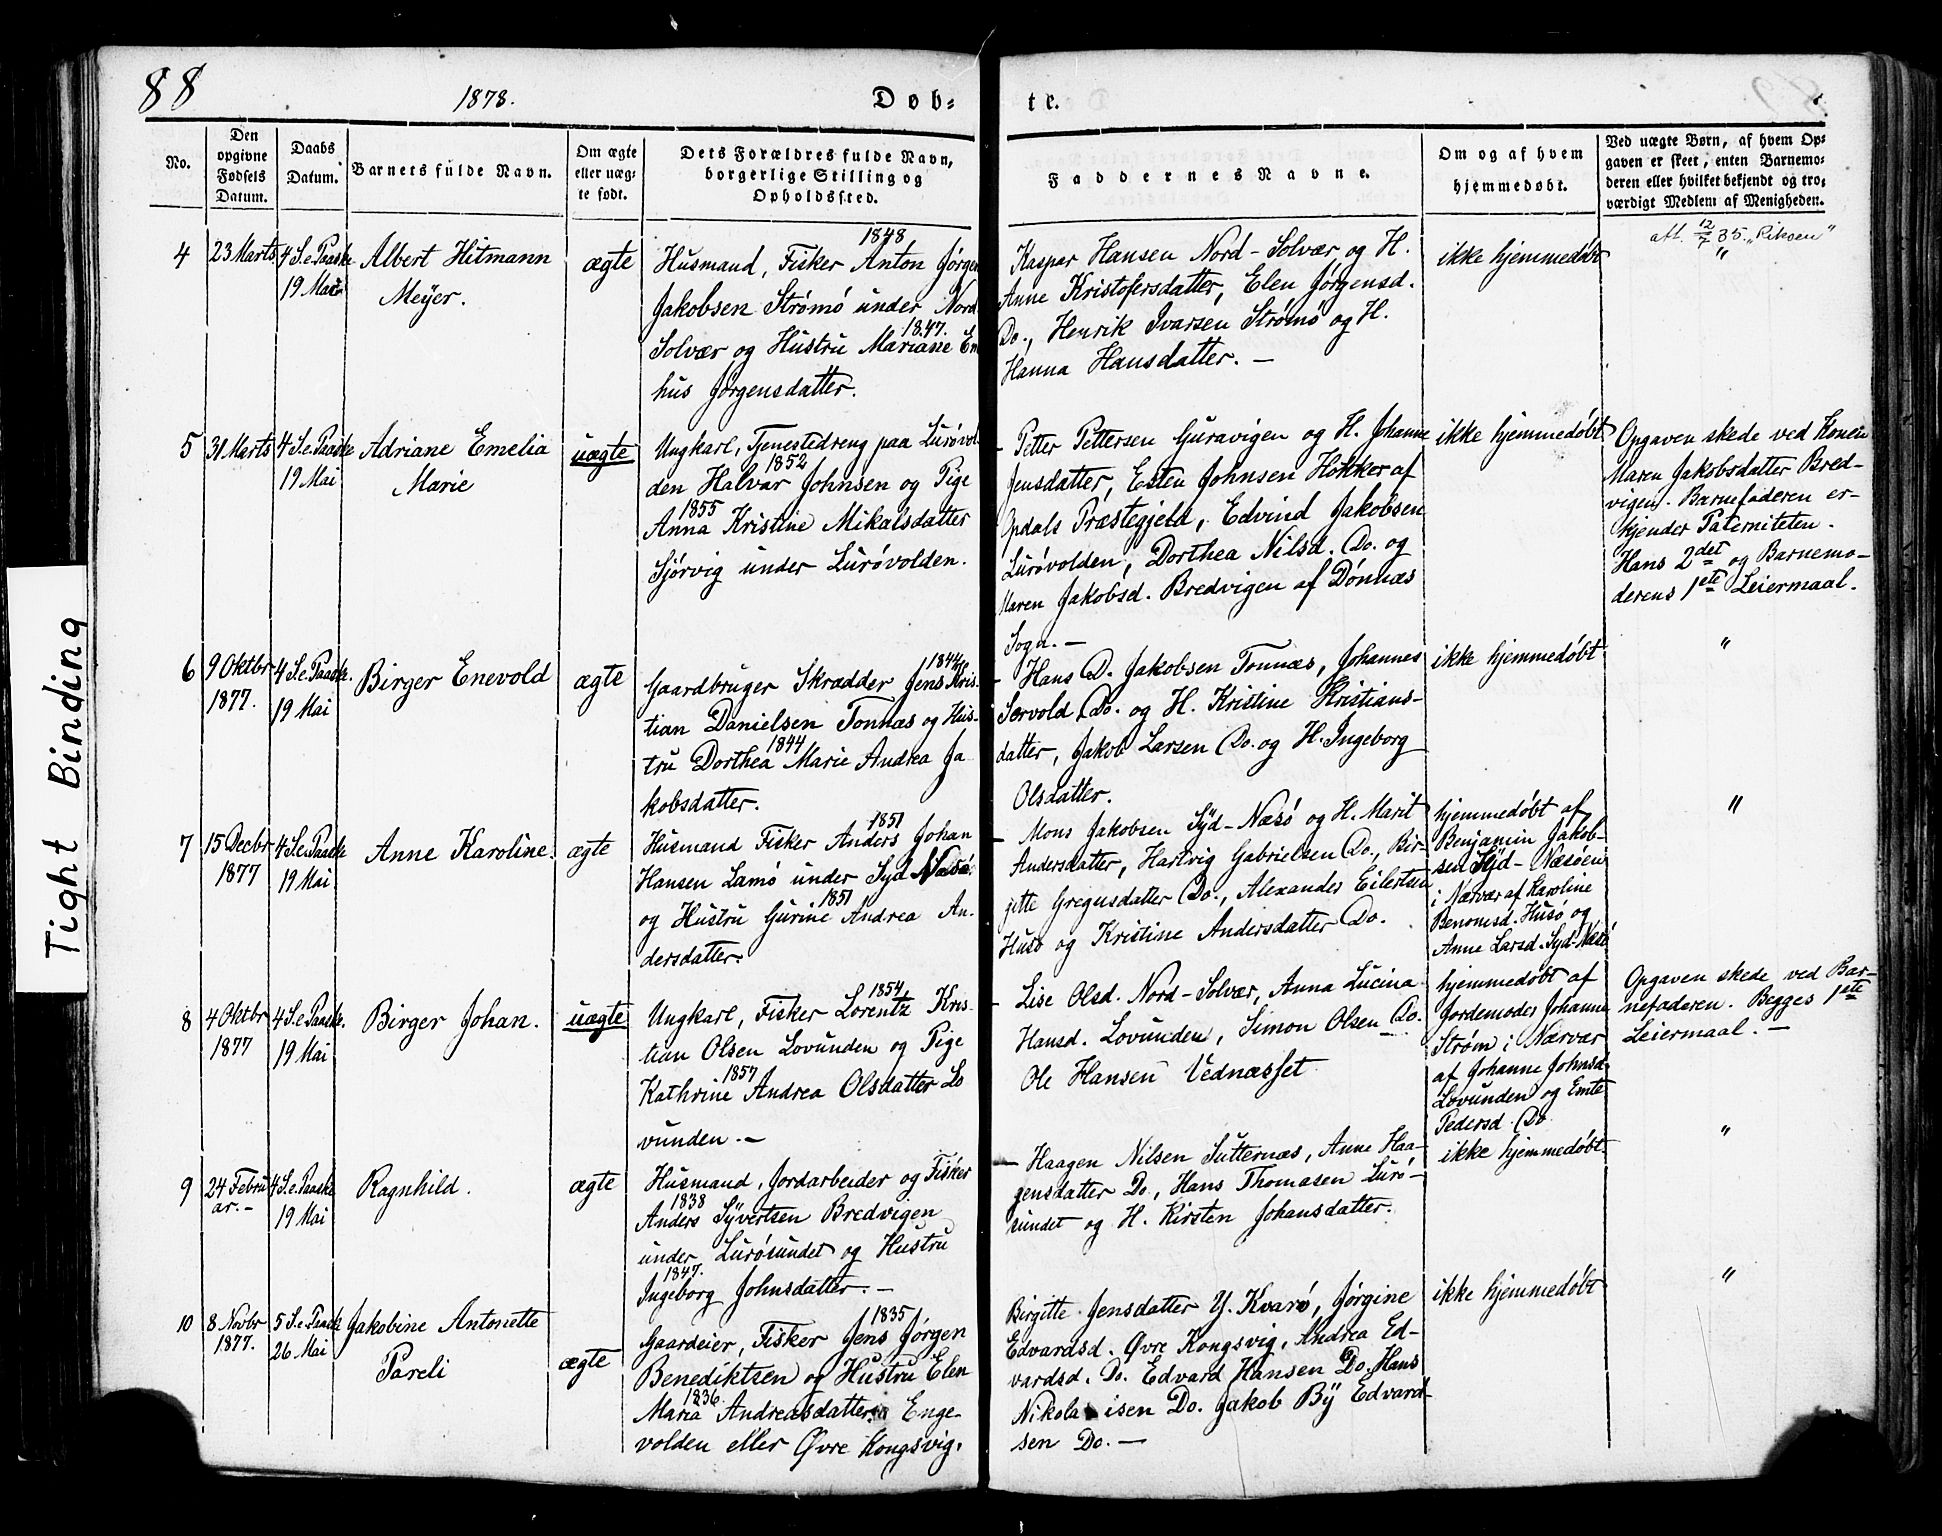 88
1878.
Døb-
te.
No.
Den opgivne Fødsels Datum.
Daabs Datum.
Barnets fulde Navn.
Om ægte eller uæg-te født.
Dets Forældres fulde Navn, borgerlige Stilling og Opholdssted.
Faddernes Navne.
Om og af hvem hjemmedøbt.
Ved uægte Børn, af hvem Op-gaven er skeet, enten Barnemo-deren eller hvilket bekjendt og tro-værdigt Medlem af Menigheden.
4
23 Marts
4 S. e. Paaske
19 Mai
Albert Hitmann
Meyer.
ægte
1848
Husmand, Fisker Anton Jørgen
Jakobsen Strømø under Nord
1847.
Solvær og Hustru Mariane En
hus Jørgensdatter.
Kaspar Hansen Nord-Solvær og H.
Anne Kristofersdatter, Elen Jørgensd.
Do., Henrik Ivarsen Strømø og H.
Hanna Hansdatter. —
ikke hjemmedøbt
att. 12/7 35 „Riksen"
"
5
31 Marts
4 S. e. Paaske
19 Mai
Adriane Emelia
Marie
uægte
Ungkarl, Tjenestedreng paa Lurøvol
1852
den Halvar Johnsen og Pige
1855
Anna Kristine Mikalsdatter
Sjørvig under Lurøvolden.
— Petter Pettersen Guravigen og H. Johanne
Jensdatter, Esten Johnsen Hokker af
Opdals Præstegjeld, Edvind Jakobsen
Lurøvolden, Dorthea Nilsd. Do. og
Maren Jakobsd. Bredvigen af Dønnæs
Sogn. —
ikke hjemmedøbt
Opgaven skede ved Konen
Maren Jakobsdatter Bred-
vigen. Barnefaderen er-
kjender Paterniteten.
Hans 2det og Barnemo-
derens 1ste Leiermaal.
6
9 Oktbr
1877.
4 S. e. Paaske.
19 Mai
Birger Enevold
ægte
1844
Gaardbruger Skrædder Jens Kris-
tian Danielsen Tonnæs og Hus-
1844
tru Dorthea Marie Andrea Ja-
kobsdatter.
— Hans D. Jakobsen Tonnæs, Johannes
Sørvold Do. og H. Kristine Kristians-
datter, Jakob Larsen Do. og H. Ingeborg
Olsdatter.
ikke hjemmedøbt
"
7
15 Decbr
1877
4 S. e. Paaske
19 Mai
Anne Karoline.
ægte
1851
Husmand Fisker Anders Johan
Hansen Lamø under Syd Næsø.
1851
og Hustru Gurine Andrea An-
dersdatter.
— Mons Jakobsen Syd-Næsø og H. Marit
Andersdatter, Hartvig Gabrielsen Do., Bir-
gitte Gregusdatter Do., Alexander Eilertsen
Husø og Kristine Andersdatter Do.
hjemmedøbt af
Benjamin Jakob-
sen Syd-Næsøen
i Nærvær af Karoline
Benomsd. Husø og
Anne Larsd. Syd-Næsø
"
8
4 Oktbr
1877
4 S. e. Paaske.
19 Mai
Birger Johan.
uægte
1854
Ungkarl, Fisker Lorentz Kris-
tian Olsen Lovunden og Pige
1857
Kathrine Andrea Olsdatter Lo
vunden. —
— Lise Olsd. Nord-Solvær, Anna Lucina
Hansd. Lovunden, Simon Olsen Do.
Ole Hansen Vednæsset
hjemmedøbt af
Jordemoder Johanne
Strøm i Nærvær
af Johanne Johnsd.
Lovunden og Emte
Pedersd. Do.
Opgaven skede ved Bar-
nefaderen. Begges 1ste
Leiermaal. —
9
24 Febru
ar. —
4 S. e. Paaske
19 Mai
Ragnhild.
ægte
Husmand, Jordarbeider og Fisker
1838
Anders Syvertsen Bredvigen
under Lurøsundet og Hustru
1847.
Ingeborg Johnsdatter. —
— Haagen Nilsen Sutternæs, Anne Haa-
gensdatter Do., Hans Thomasen Lurø-
sundet og H. Kirsten Johansdatter.
ikke hjemmedøbt.
"
10
8 Novbr
1877.
5 S. e. Paaske
26 Mai
Jakobine Antonette
Pareli
ægte
1835
Gaardeier, Fisker Jens Jørgen
Benediktsen og Hustru Elen
1836
Maria Andreasdatter Enge-
volden eller Øvre Kongsvig.
Birgitte Jensdatter Y. Kvarø, Jørgine
Edvardsd. Øvre Kongsvig, Andrea Ed-
vardsd. Do. Edvard Hansen Do. Hans
Nikolaisen Do. Jakob By Edvard-
sen Do. —
ikke hjemmedøbt
"
Tight Binding